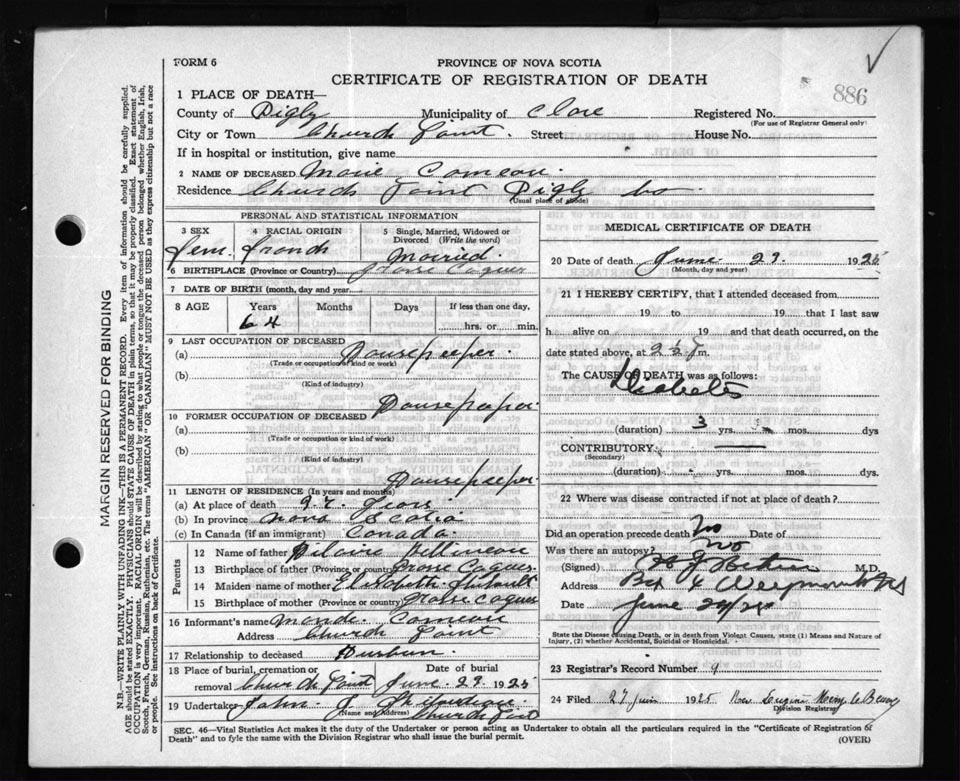 FORM 6
PROVINCE OF NOVA SCOTIA
CERTIFICATE OF REGISTRATION OF DEATH
886
1 PLACE OF DEATH—
County of Digby Municipality of Clare Registered No.
(For use of Registrar General only)
City or Town Church Point. Street House No.
If in hospital or institution, give name
2 NAME OF DECEASED Marie Comeau.
Residence Church Point Digby Co.
(Usual place of abode)
MARGIN RESERVED FOR BINDING
N.B.—WRITE PLAINLY WITH UNFADING INK—THIS IS A PERMANENT RECORD. Every item of information should be carefully supplied.
AGE should be stated EXACTLY. PHYSICIANS should STATE CAUSE OF DEATH in plain terms, so that it may be properly classified. Exact statement of
OCCUPATION is very important. RACIAL ORIGIN will be described by stating to what people or tongue the deceased person belonged whether English, Irish,
Scotch, French, German, Russian, Ruthenian, etc. The terms "AMERICAN" OR "CANADIAN" MUST NOT BE USED as they express citizenship but not a race
or people. See instructions on back of Certificate.
PERSONAL AND STATISTICAL INFORMATION
3 SEX 4 RACIAL ORIGIN 5 Single, Married, Widowed or
Divorced (Write the word)
fem. french Married.
6 BIRTHPLACE (Province or Country) Grosse Coques
7 DATE OF BIRTH (month, day and year)
8 AGE Years Months Days If less than one day,
64 hrs. or min.
9 LAST OCCUPATION OF DECEASED
(a) Housekeeper.
(Trade or occupation kind or work)
(b)
(Kind of industry)
10 FORMER OCCUPATION OF DECEASED Housekeeper.
(a)
(Trade or occupation or kind of work)
(b)
(Kind of industry)
Housekeeper.
11 LENGTH OF RESIDENCE (In years and months)
(a) At place of death years
(b) In province Nova Scotia
(c) In Canada (if an immigrant) Canada.
Parents
12 Name of father Hilaire
13 Birthplace of father (Province or country) Grosse Coques.
14 Maiden name of mother Elizabeth Thibault
15 Birthplace of mother (Province or country) Grosse Coques
16 Informant's name Comeau
Address Church Point
17 Relationship to deceased Husbun.
18 Place of burial, cremation or Date of burial
removal Church Point June 1925
19 Undertaker John J
(Name and Address) Church Point
MEDICAL CERTIFICATE OF DEATH
20 Date of death June 23. 1925
(Month, day and year)
21 I HEREBY CERTIFY, that I attended deceased from
19 to 19 : that I last saw
h alive on 19 and that death occurred, on the
date stated above, at 2½ m.
The CAUSE OF DEATH was as follows:
Diabetes
(duration) 3 yrs. mos. dys
CONTRIBUTORY:
(Secondary)
(duration) yrs. mos. dys
22 Where was disease contracted if not at place of death?
Did an operation precede death No Date of
Was there an autopsy? No
(Signed) M.D.
Address Box 4 Weymouth NS
Date June
State the Disease causing Death, or in death from Violent Causes, state (1) Means and Nature of
Injury, (2) whether Accidental, Suicidal or Homicidal.
23 Registrar's Record Number 9
24 Filed 27 juin 1925 Rev
Division Registrar
SEC. 46—Vital Statistics Act makes it the duty of the Undertaker or person acting as Undertaker to obtain all the particulars required in the "Certificate of Registration of
Death" and to fyle the same with the Division Registrar who shall issue the burial permit. (OVER)